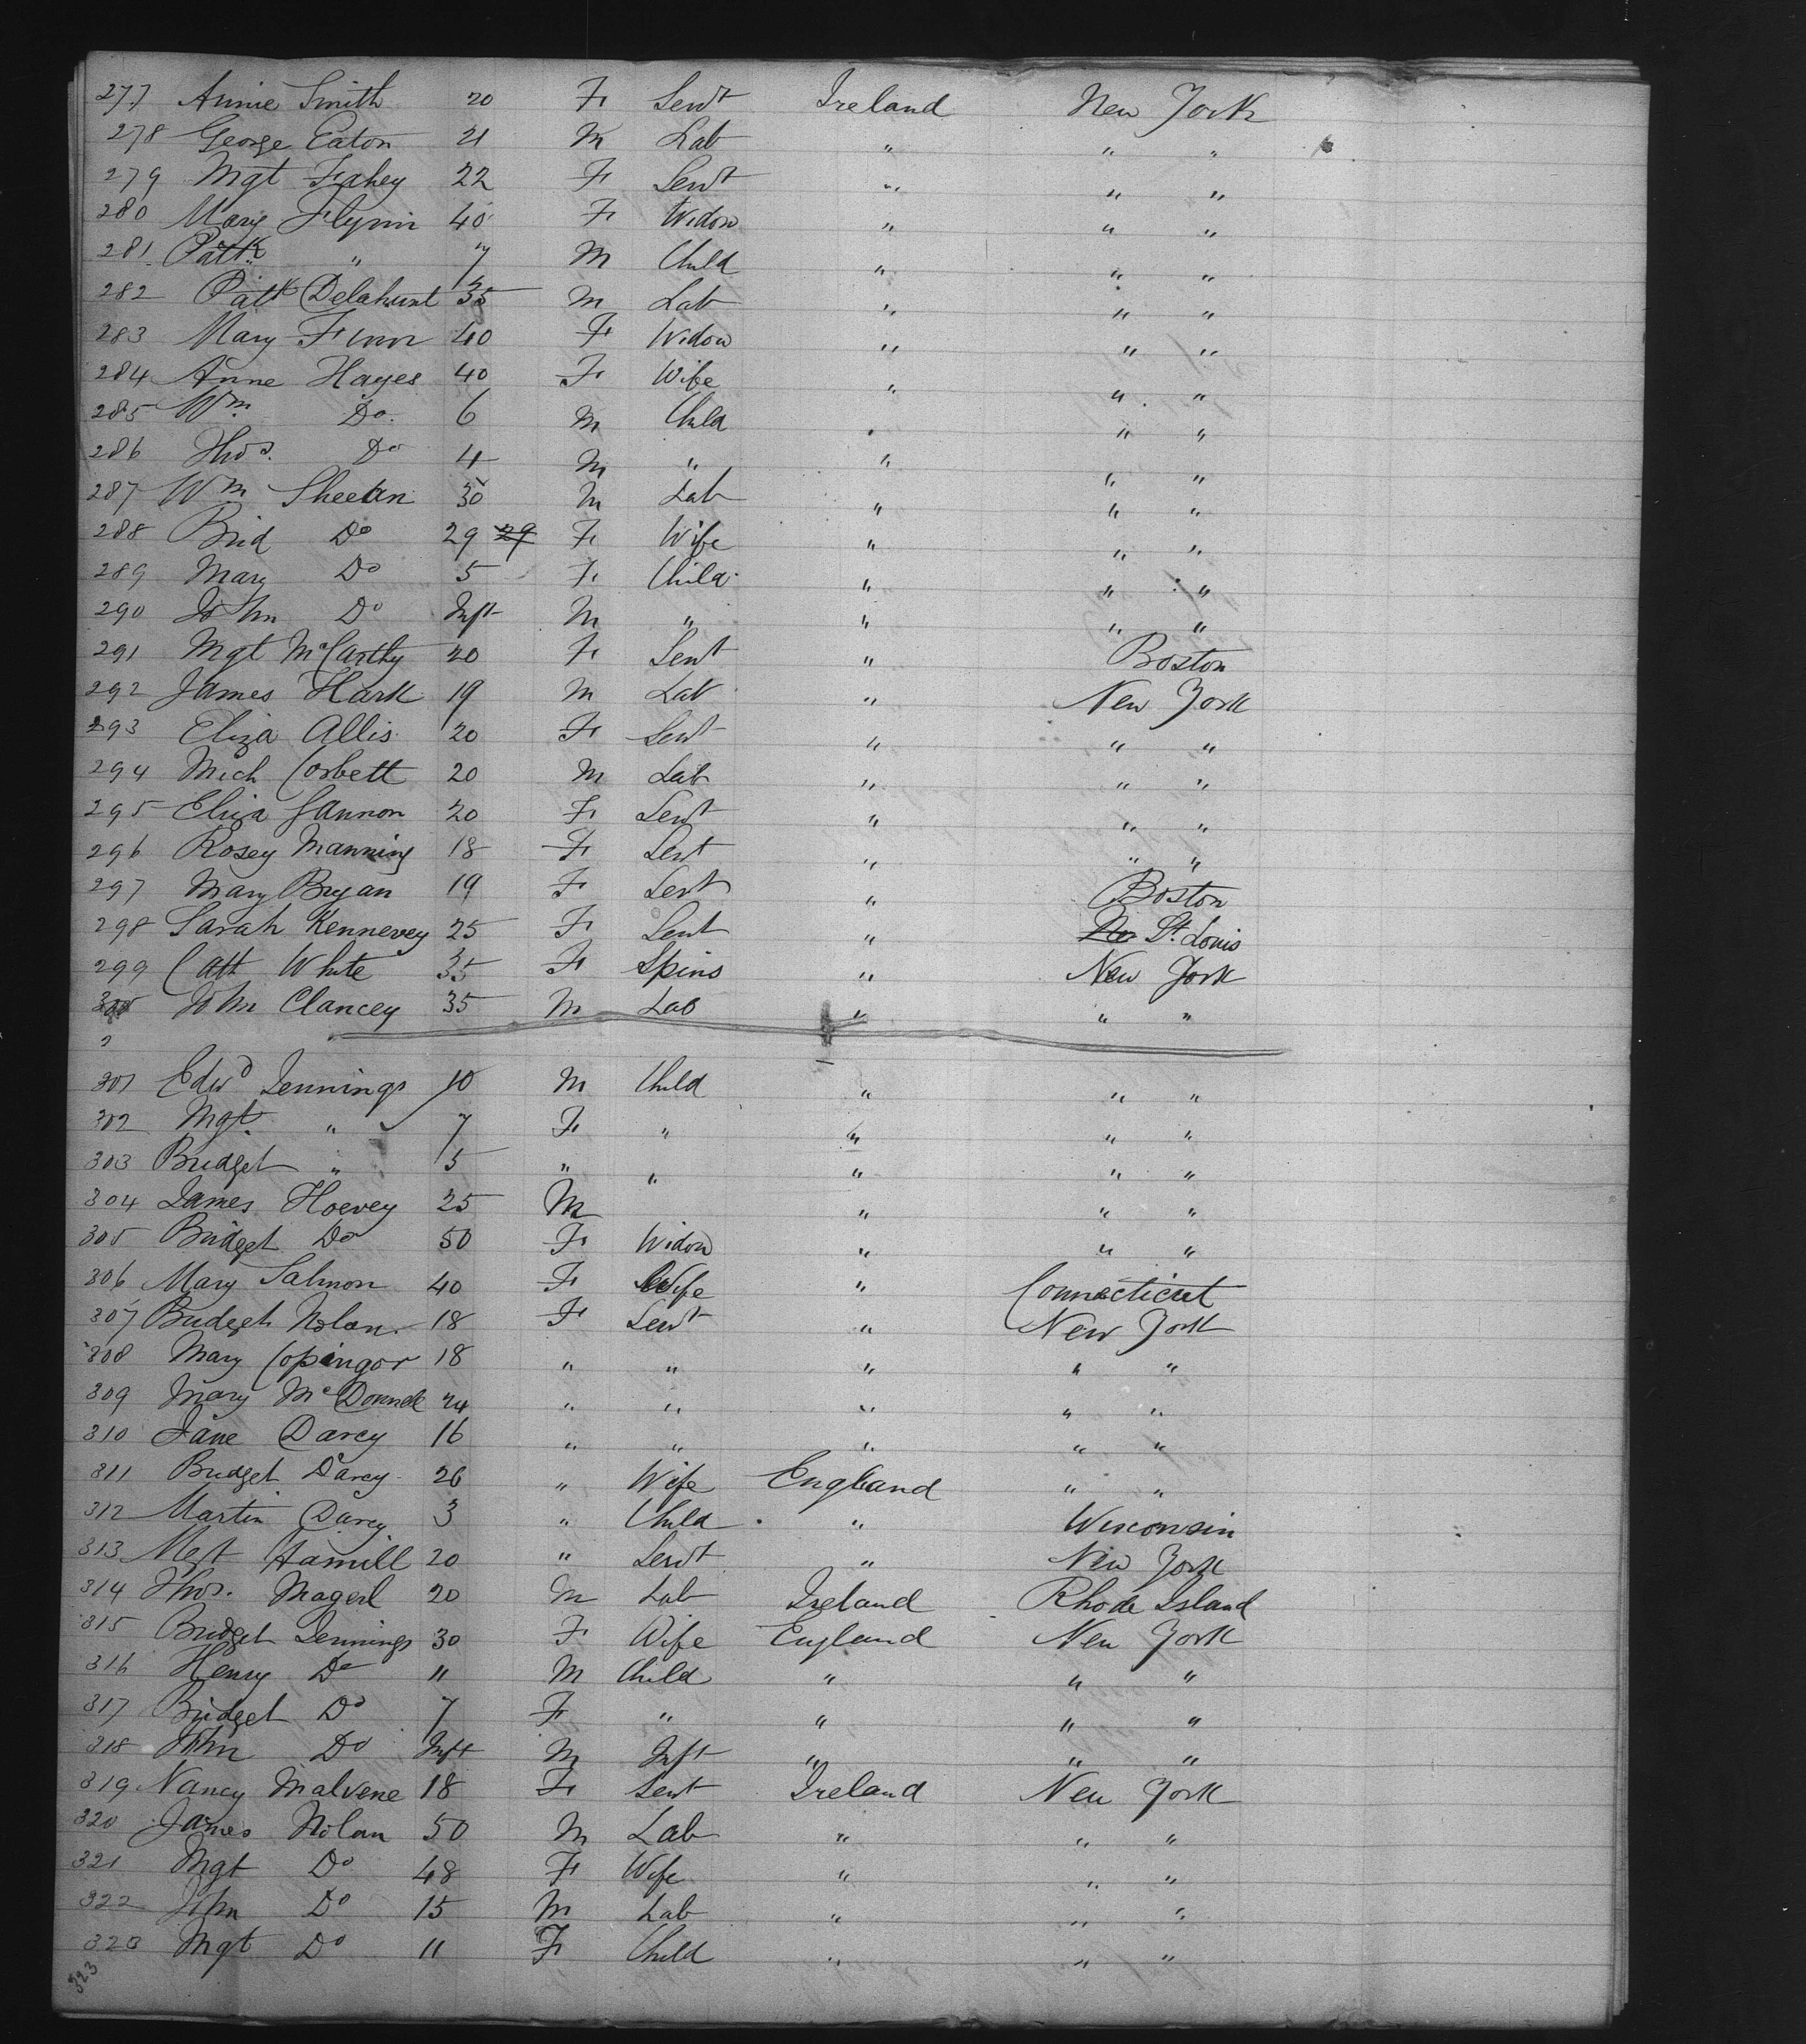 277 Annie Smith 20 F Servt Ireland New York
278 George Eaton 21 M Lab " " "
279 Mgt Fahey 22 F Servt " " "
280 Mary Flynn 40 F Widow " " "
281 Patk " 7 M Child " " "
282 Patk Delahunt 35 M Lab " " "
283 Mary Finn 40 F Widow " " "
284 Anne Hayes 40 F Wife " " "
285 Wm Do 6 M Child " " "
286 Thos. Do 4 M " " " "
287 Wm Sheehan 30 M Lab " " "
288 Brid Do 29 29 F Wife " " "
289 Mary Do 5 F Child " " "
290 John Do Inft M " " " "
291 Mgt McCarthy 20 F Servt " Boston
292 James Hark 19 M Lab " New York
293 Eliza Allis 20 F Servt " " "
294 Mich Corbett 20 M Lab " " "
295 Eliza Gannon 20 F Servt " " "
296 Rosey Manning 18 F Servt " " "
297 Mary Bryan 19 F Servt " Boston
298 Sarah Kennevey 25 F Servt " Ne St. Louis
299 Cath White 35 F Spins " New York
300 John Clancey 35 M Lab " " "
301 Edwd Jennings 10 M Child " " "
302 Mgt. " 7 F " " " "
303 Bridget " 5 " " " " "
304 James Hoevey 25 M " " "
305 Bridget Do 50 F Widow " " "
306 Mary Salmon 40 F Wife " Connecticut
307 Bridget Nolan 18 F Servt " New York
308 Mary Copingor 18 " " " " "
309 Mary McDonnell 24 " " " " "
310 Jane Darcy 16 " " " " "
311 Bridget Darcy 26 " Wife England " "
312 Martin Darcy 3 " Child " Wisconsin
313 Mgt Hamill 20 " Servt " New York
314 Thos. Magerl 20 M Lab Ireland Rhode Island
315 Bridget Jennings 30 F Wife England New York
316 Henry Do 11 M Child " " "
317 Bridget Do 7 F " " " "
318 John Do Inft M Inft " " "
319 Nancy Malvene 18 F Servt Ireland New York
320 James Nolan 50 M Lab " " "
321 Mgt Do 48 F Wife " " "
322 John Do 15 M Lab " " "
323 Mgt Do 11 F Child " " "
323